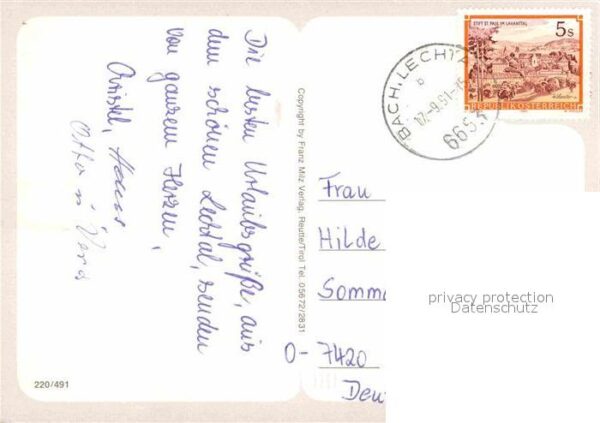 Die besten Urlaubsgrüße, aus
dem schönen Lechtal, senden
von ganzem Herzen,
Christel, Hans
Otto u. Vera
220/491
Copyright by Franz Milz Verlag, Reutte/Tirol Tel. 05672/2831
STIFT ST. PAUL IM LAVANTTAL
5 S
REPUBLIK ÖSTERREICH
BACH, LECHTA
b
6653
Frau
Hilde
Somm
O- 7420
Deu
privacy protection
Datenschutz